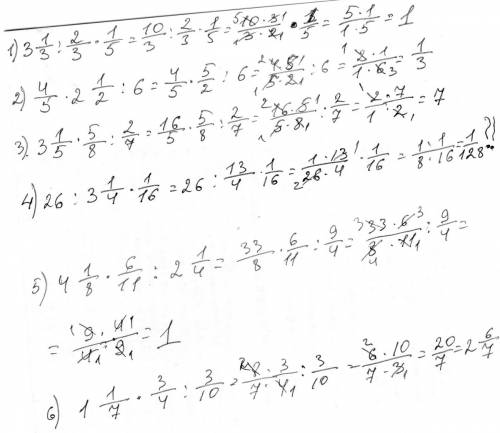 1) 3 1/3 : 2/3 · 1/5 = 10/3 : 2/3 · 1/5 = (10·3)/(3·2) · 1/5 = (5·1)/(1·5) = 1
2) 4/5 · 2 1/2 : 6 = 4/5 · 5/2 : 6 = (4·5)/(5·2) : 6 = (2·1)/(1·6) = 1/3
3) 3 1/5 · 5/8 : 2/7 = 16/5 · 5/8 : 2/7 = (16·5)/(5·8) · 2/7 = (2·7)/(1·2) = 7
4) 26 : 3 1/4 · 1/16 = 26 : 13/4 · 1/16 = (1·13)/(26·4) · 1/16 = (1·1)/(8·16) = 1/128
5) 4 1/8 · 6/11 : 2 1/4 = 33/8 · 6/11 : 9/4 = (33·6)/(8·11) : 9/4 =
= (9·4)/(4·9) = 1
6) 1 1/7 · 3/4 : 3/10 = (8·3)/(7·4) : 3/10 = (6·10)/(7·3) = 20/7 = 2 6/7